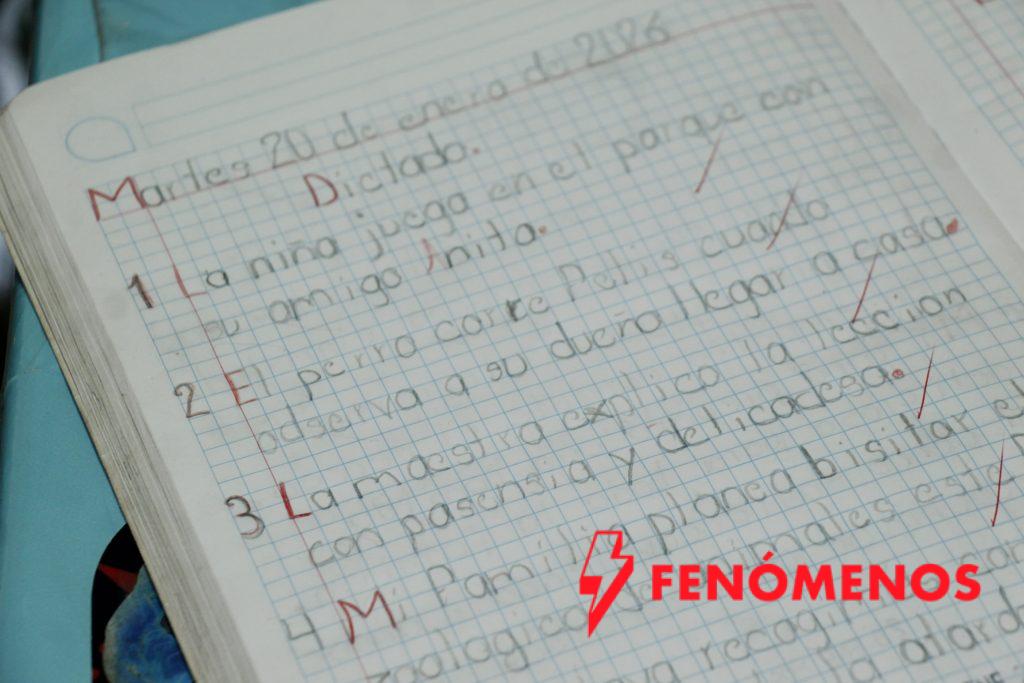 Martes 20 de enero de 2026
Dictado.
1 La niña juega en el parque con
su amigo Anita.
2 El perro corre Pelis cuando
adserva a su dueño llegar a casa.
3 La maestra explico la leccion
con pasensia y delicadesa.
4 Mi Pamilia planea bisitar el
zoologico animales esta
recogi
la atard
FENÓMENOS